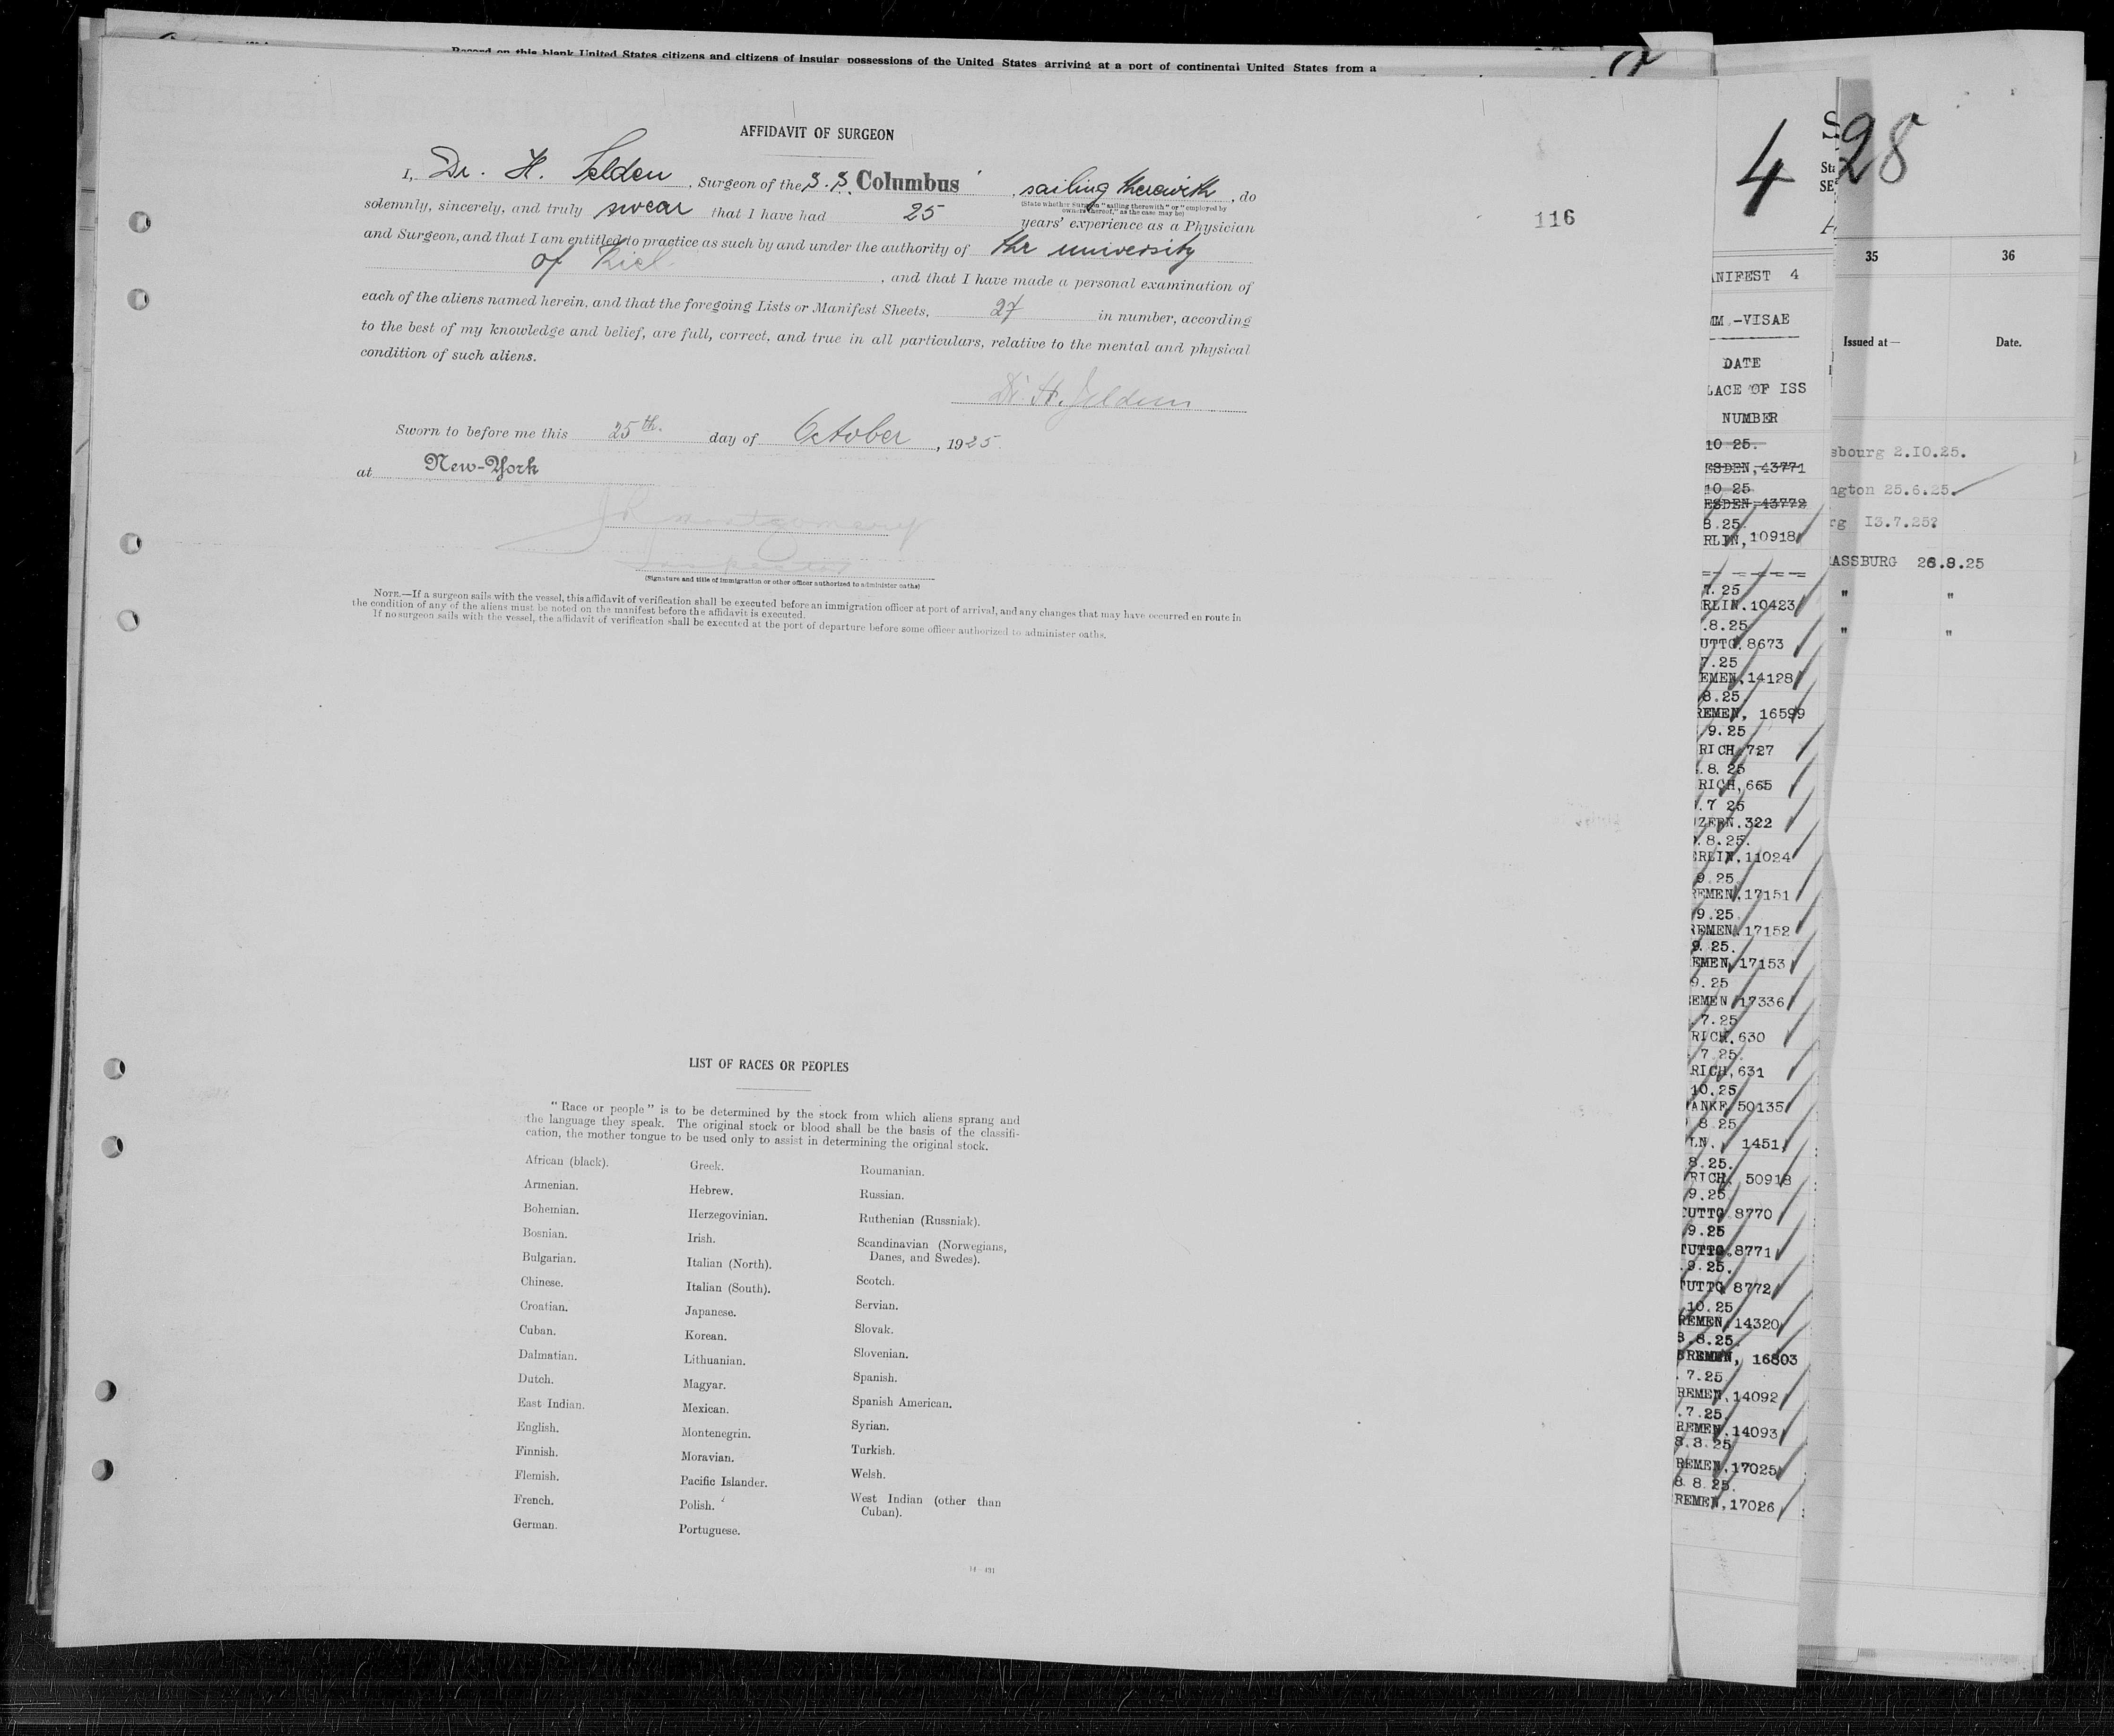 Record on this blank United States citizens and citizens of insular possessions of the United States arriving at a port of continental United States from a
AFFIDAVIT OF SURGEON
I, Dr. H. Felden, Surgeon of the S.S. Columbus, sailing therewith, do
(State whether surgeon "sailing therewith" or "employed by
owners thereof," as the case may be)
solemnly, sincerely, and truly swear that I have had 25 years' experience as a Physician
and Surgeon, and that I am entitled to practice as such by and under the authority of thr university
of Kiel, and that I have made a personal examination of
each of the aliens named herein, and that the foregoing Lists or Manifest Sheets, 27 in number, according
to the best of my knowledge and belief, are full, correct, and true in all particulars, relative to the mental and physical
condition of such aliens.
Dr. H. Felden
Sworn to before me this 25th. day of October, 1925.
at New-York
Montgomery
Inspector
(Signature and title of immigration or other officer authorized to administer oaths)
NOTE.—If a surgeon sails with the vessel, this affidavit of verification shall be executed before an immigration officer at port of arrival, and any changes that may have occurred en route in
the condition of any of the aliens must be noted on the manifest before the affidavit is executed.
If no surgeon sails with the vessel, the affidavit of verification shall be executed at the port of departure before some officer authorized to administer oaths.
116
LIST OF RACES OR PEOPLES
"Race or people" is to be determined by the stock from which aliens sprang and
the language they speak. The original stock or blood shall be the basis of the classifi-
cation, the mother tongue to be used only to assist in determining the original stock.
African (black).
Armenian.
Bohemian.
Bosnian.
Bulgarian.
Chinese.
Croatian.
Cuban.
Dalmatian.
Dutch.
East Indian.
English.
Finnish.
Flemish.
French.
German.
Greek.
Hebrew.
Herzegovinian.
Irish.
Italian (North).
Italian (South).
Japanese.
Korean.
Lithuanian.
Magyar.
Mexican.
Montenegrin.
Moravian.
Pacific Islander.
Polish.
Portuguese.
Roumanian.
Russian.
Ruthenian (Russniak).
Scandinavian (Norwegians,
Danes, and Swedes).
Scotch.
Servian.
Slovak.
Slovenian.
Spanish.
Spanish American.
Syrian.
Turkish.
Welsh.
West Indian (other than
Cuban).
14—431
4
ANIFEST 4
MM.-VISAE
DATE
LACE OF ISS
NUMBER
10 25.
ESDEN, 43771
10 25
ESDEN, 43772
8.25.
RLIN, 10918
7.25
RLIN.10423
.8.25
UTTG.8673
7.25
EMEN, 14128
8.25
REMEN, 16599
9.25
RICH, 727
.8.25
RICH, 665
.7 25
ZERN.322
.8.25.
ERLIN, 11024
9.25
REMEN, 17151
9.25.
REMEN. 17152
9.25.
EMEN, 17153
9.25
EMEN 17336
.7.25
RICH, 630
7.25.
RICH, 631
10.25
ANKF, 50135
8.25
LN. 1451
8.25.
RICH, 50918
9.25
TUTTG.8770
9.25
TUTTG.8771
.9.25.
TUTTG 8772
10.25
REMEN, 14320
8.8.25.
BREMEN, 16803
.7.25
REMEN, 14092
.7.25.
REMEN, 14093
8.8.25
REMEN, 17025
8 8.25.
REMEN, 17026
28
35 36
Issued at— Date.
sbourg 2.10.25.
ngton 25.6.25.
rg 13.7.25?
RASSBURG 26.8.25
" "
" "